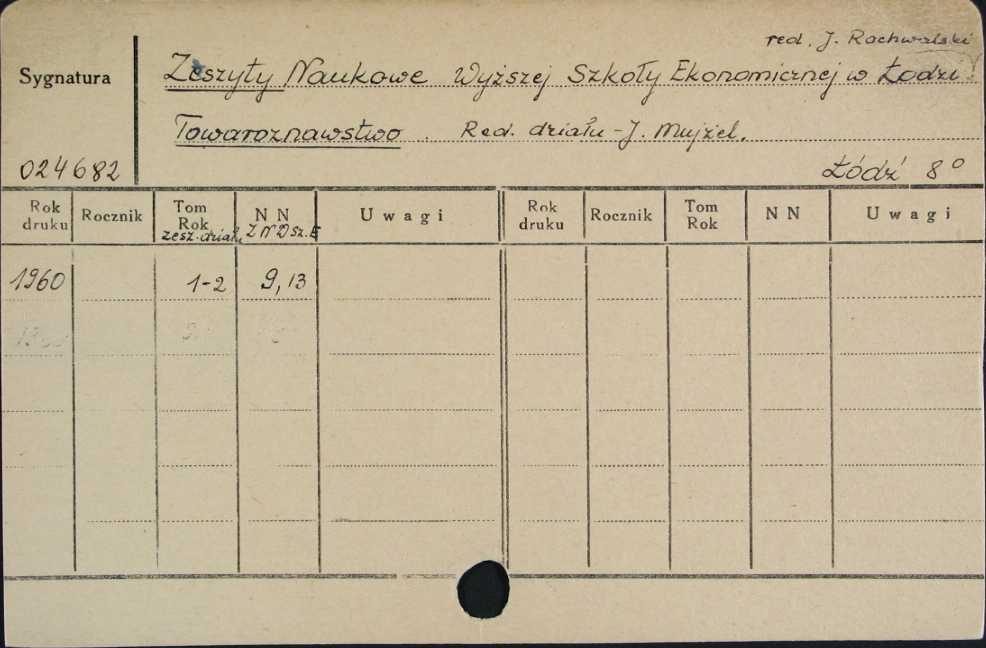 red. J. Rachwalski
Sygnatura
Zeszyty Naukowe Wyższej Szkoły Ekonomicznej w Łodzi.
Towaroznawstwo. Red. działu - J. Mujżel.
024682
Łódź 8°
Rok druku Rocznik Tom Rok N N Uwagi Rok druku Rocznik Tom Rok N N Uwagi
zesz. działu
1960 1-2 9, 13